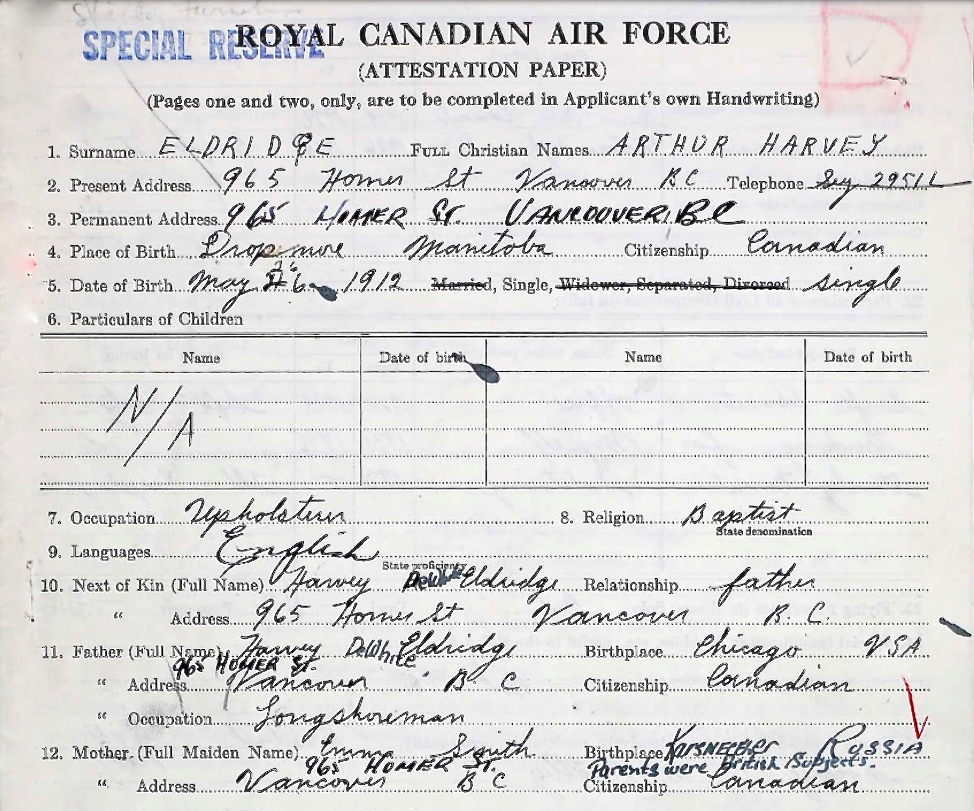 SPECIAL RESERVE
ROYAL CANADIAN AIR FORCE
(ATTESTATION PAPER)
(Pages one and two, only, are to be completed in Applicant's own Handwriting)
1. Surname ELDRIDGE FULL Christian Names ARTHUR HARVEY
2. Present Address 965 Homer St Vancover BC Telephone Sey 2951L
3. Permanent Address 965 HOMER St. VANCOUVER, BC
4. Place of Birth Dropmore Manitoba Citizenship Canadian
5. Date of Birth May 26 1912 Married, Single, Widower, Separated, Divorced single
6. Particulars of Children
Name Date of birth Name Date of birth
N/A
7. Occupation Upholsterer 8. Religion Baptist
State denomination
9. Languages English
State proficiency
10. Next of Kin (Full Name) Harvey DeWhite Eldridge Relationship father
" Address 965 Homer St Vancover B.C.
11. Father (Full Name) Harvey DeWhite Eldridge Birthplace Chicago USA
965 HOMER St
" Address Vancover B C Citizenship Canadian
" Occupation Longshoreman
12. Mother (Full Maiden Name) Emma Smith Birthplace RUSSIA
965 HOMER St. Parents were British Subjects.
" Address Vancover B C Citizenship Canadian